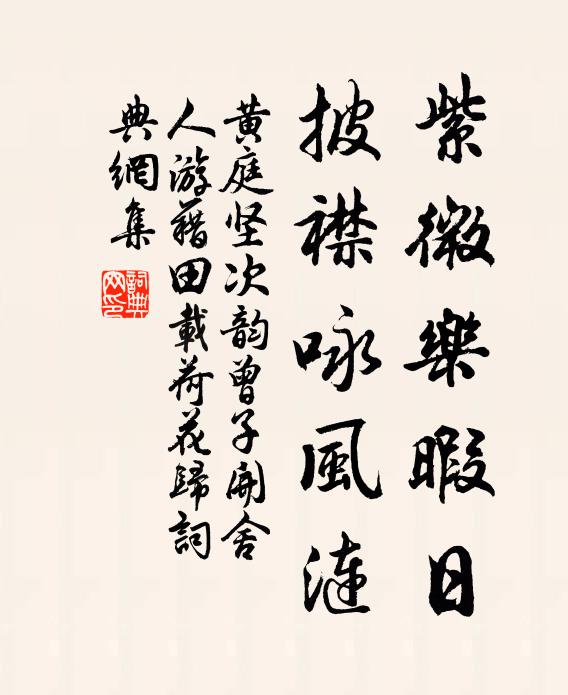 紫微樂暇日
披襟咏風漣
黄庭坚次韵曾子開舍
人游藉田載荷花歸詞
典網集
詞典
网印